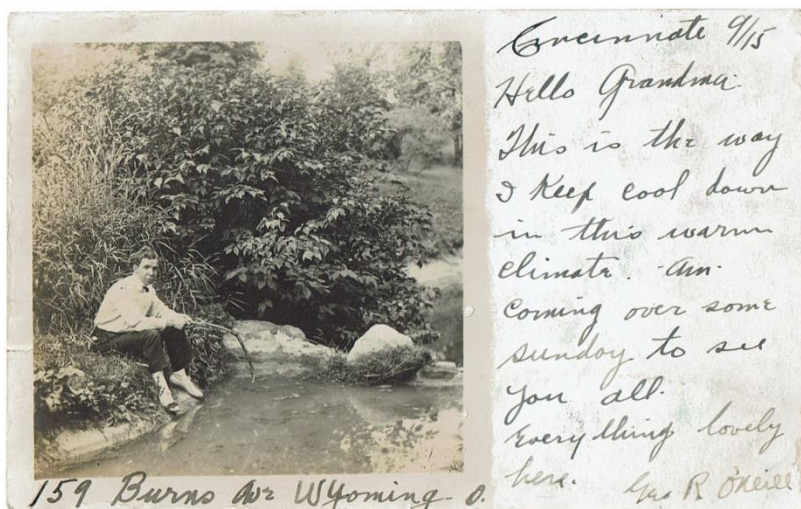 Cincinnate 9/15
Hello Grandma.
This is the way
I Keep cool down
in this warm
climate. Am.
coming over some
sunday to see
you all.
Every thing lovely
here.
Geo R O'Neill
159 Burns Ave Wyoming O.